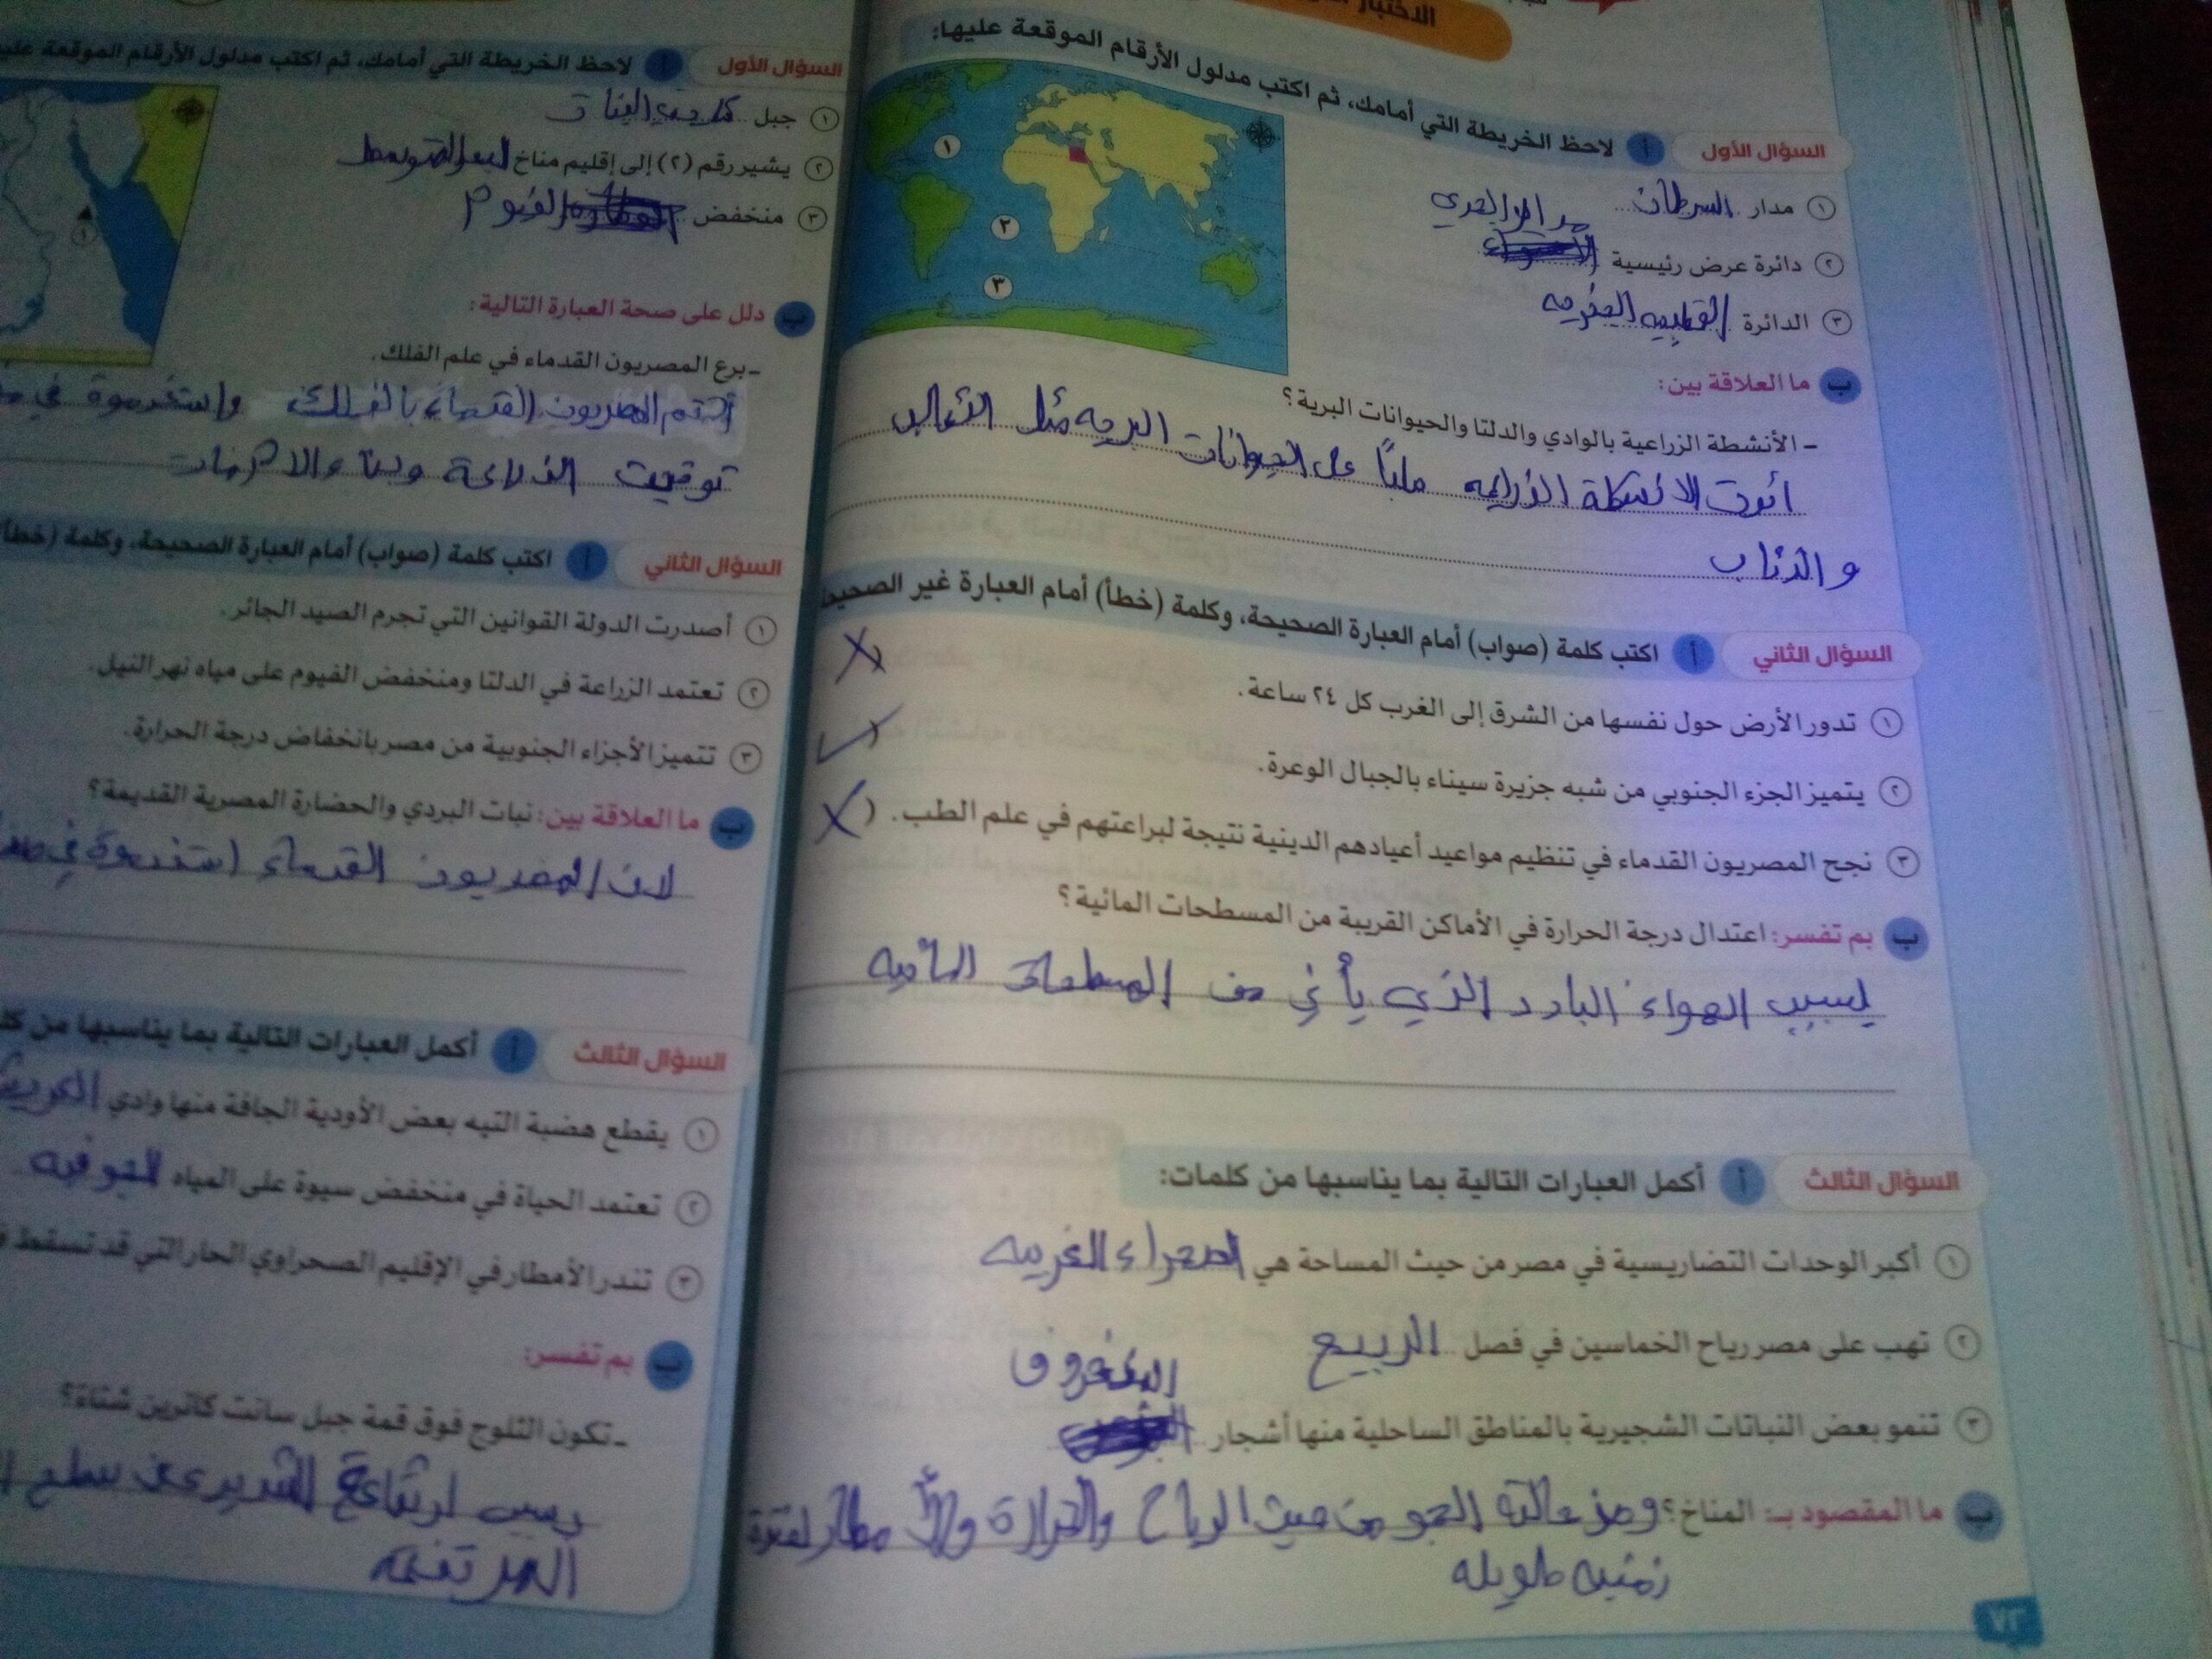 الاختبار
السؤال الأول أ لاحظ الخريطة التي أمامك، ثم اكتب مدلول الأرقام الموقعة عليها:
١ مدار السرطان
مدار الجدي
٢ دائرة عرض رئيسية
٣ الدائرة القطبيه الجنوبيه
١
٢
٣
ب ما العلاقة بين:
- الأنشطة الزراعية بالوادي والدلتا والحيوانات البرية؟
اثرت الانشطة الزراعيه سلبًا على الحيوانات البريه مثل الثعالب
والذئاب
السؤال الثاني أ اكتب كلمة (صواب) أمام العبارة الصحيحة، وكلمة (خطأ) أمام العبارة غير الصحيحة
١ تدور الأرض حول نفسها من الشرق إلى الغرب كل ٢٤ ساعة.
٢ يتميز الجزء الجنوبي من شبه جزيرة سيناء بالجبال الوعرة.
٣ نجح المصريون القدماء في تنظيم مواعيد أعيادهم الدينية نتيجة لبراعتهم في علم الطب. (
ب بم تفسر: اعتدال درجة الحرارة في الأماكن القريبة من المسطحات المائية؟
بسبب الهواء البارد الذي يأتي من المسطحات المائيه
السؤال الثالث أ أكمل العبارات التالية بما يناسبها من كلمات:
١ أكبر الوحدات التضاريسية في مصر من حيث المساحة هي الصحراء الغربيه
٢ تهب على مصر رياح الخماسين في فصل الربيع
٣ تنمو بعض النباتات الشجيرية بالمناطق الساحلية منها أشجار
ب ما المقصود بـ: المناخ؟ وصف حالة الجو من حيث الرياح والحرارة والأمطار لفترة
زمنيه طويله
٧٣
السؤال الأول أ لاحظ الخريطة التي أمامك، ثم اكتب مدلول الأرقام الموقعة
١ جبل
٢ يشير رقم (٢) إلى إقليم مناخ البحر المتوسط
٣ منخفض الفيوم
١
ب دلل على صحة العبارة التالية:
- برع المصريون القدماء في علم الفلك.
أهتم المصريون القدماء بالفلك واستخدموة في
توقيت الزراعة وبناء الاهرمات
السؤال الثاني أ اكتب كلمة (صواب) أمام العبارة الصحيحة، وكلمة (خطأ
١ أصدرت الدولة القوانين التي تجرم الصيد الجائر.
٢ تعتمد الزراعة في الدلتا ومنخفض الفيوم على مياه نهر النيل.
٣ تتميز الأجزاء الجنوبية من مصر بانخفاض درجة الحرارة.
ب ما العلاقة بين: نبات البردي والحضارة المصرية القديمة؟
لان المصريون القدماء استخدموة في
السؤال الثالث أ أكمل العبارات التالية بما يناسبها من
١ يقطع هضبة التيه بعض الأودية الجافة منها وادي العريش
٢ تعتمد الحياة في منخفض سيوة على المياه الجوفيه
٣ تندر الأمطار في الإقليم الصحراوي الحار التي قد تسقط
ب بم تفسر:
- تكون الثلوج فوق قمة جبل سانت كاترين شتاءً؟
بسبب ارتفاعة الشديد عن سطح
المرتفعه